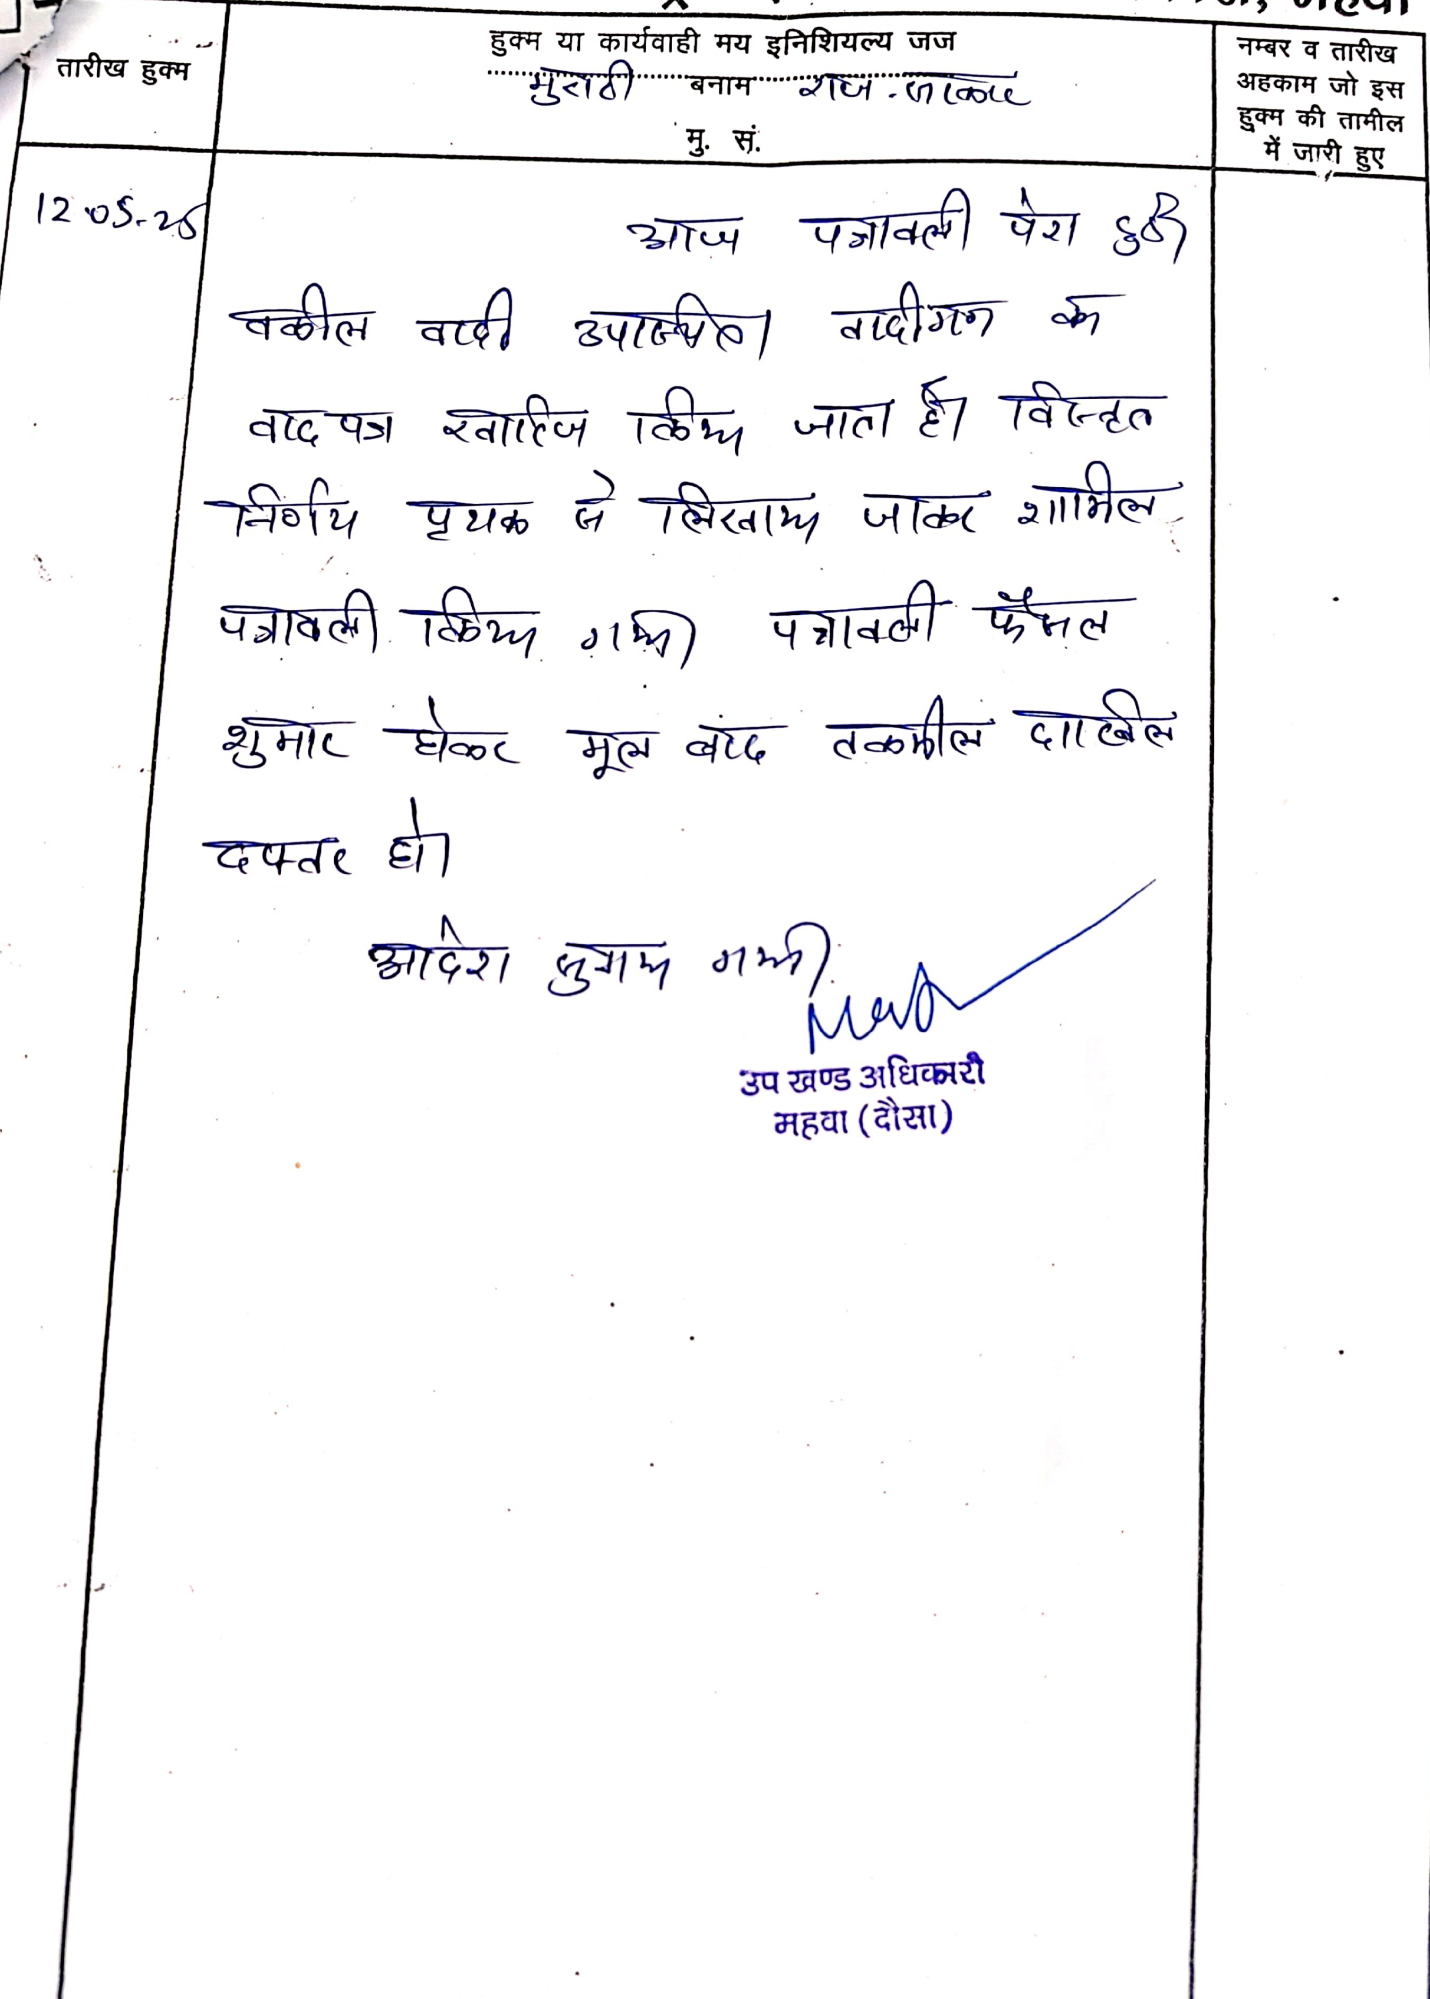 महवा
तारीख हुक्म
हुक्म या कार्यवाही मय इनिशियल्य जज
बनाम राज. सरकार
मु. सं.
नम्बर व तारीख
अहकाम जो इस
हुक्म की तामील
में जारी हुए
12.05.25
आज पत्रावली पेश हुई।
वकील वादी उपस्थित। वादीगण का
वाद पत्र खारिज किया जाता है। विस्तृत
निर्णय पृथक से लिखाया जाकर शामिल
पत्रावली किया गया। पत्रावली फैसल
शुमार होकर मूल बाद तकमील दाखिल
दफ्तर हो।
आदेश सुनाया गया।
उप खण्ड अधिकारी
महवा (दौसा)